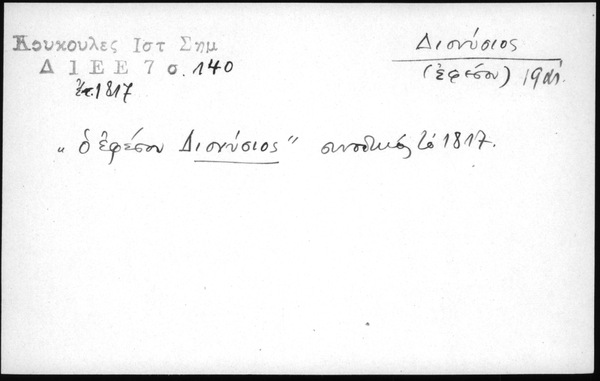 Κουκουλες Ιστ Σημ
Δ 1 Ε Ε 7 σ. 140
ἔτ. 1817
Διονύσιος
(ἐφέσου) 19 αἰ.
"ὁ ἐφέσου Διονύσιος" συνοδικός τό 1817.